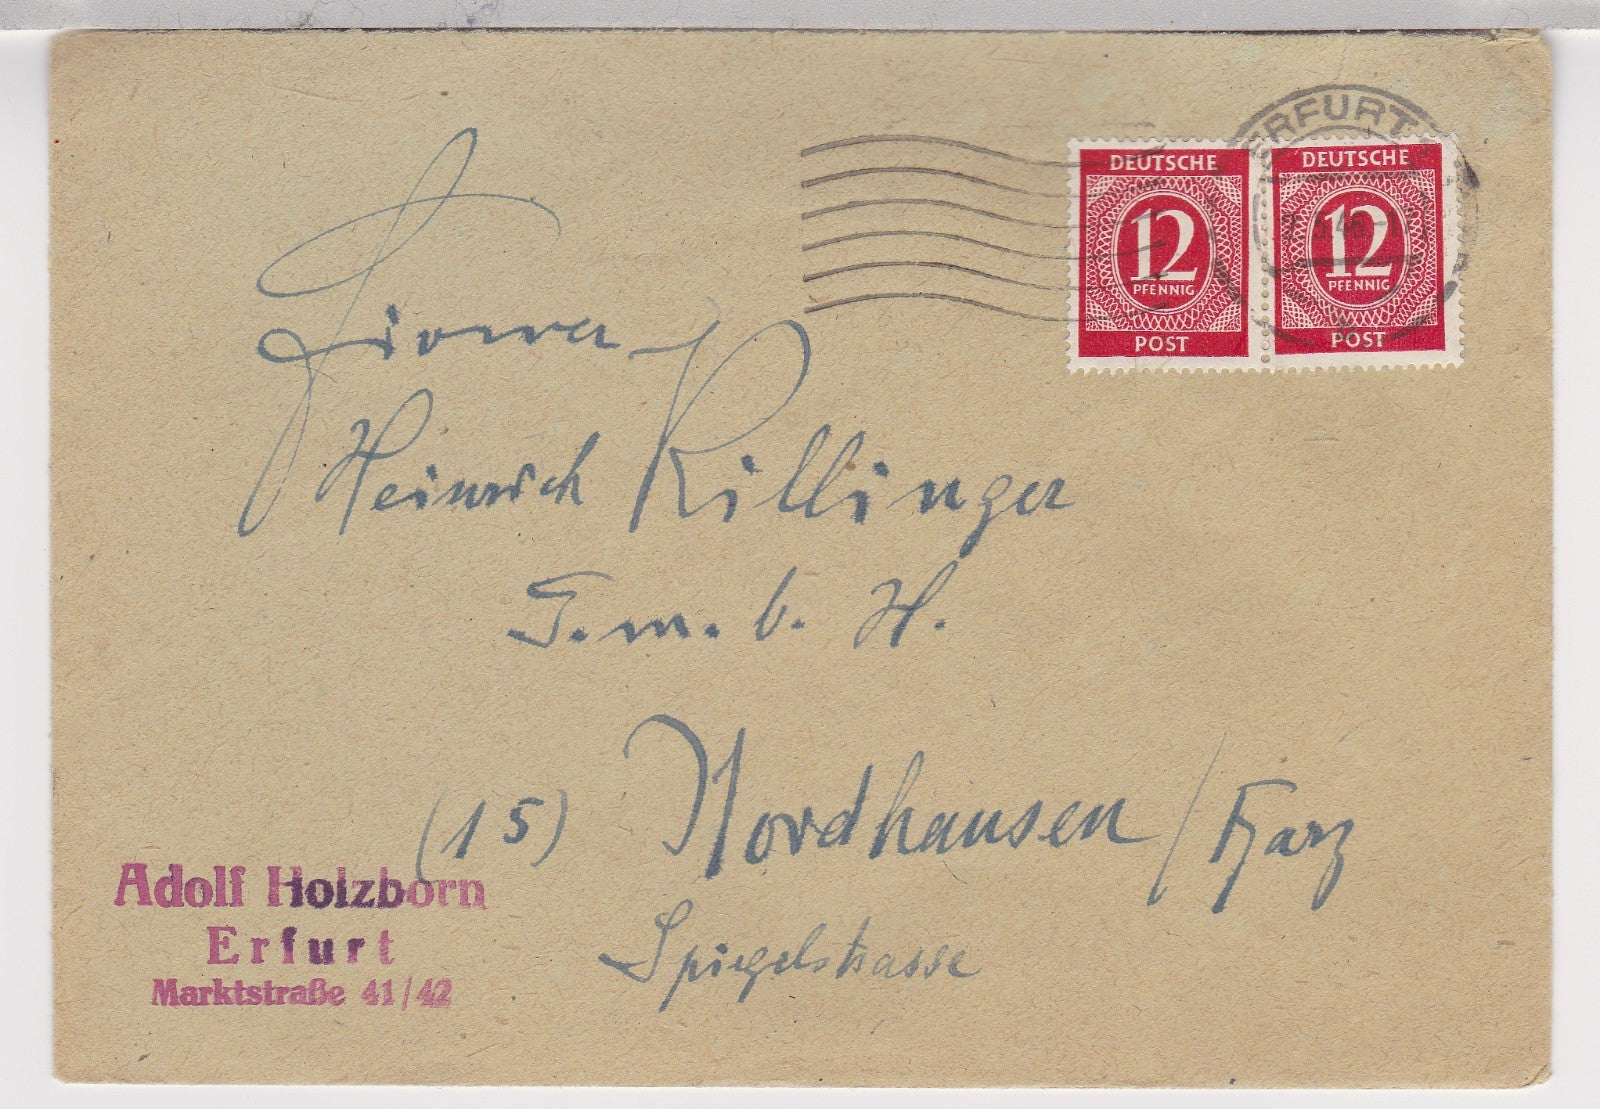 ERFURT
DEUTSCHE
12
PFENNIG
POST
DEUTSCHE
12
PFENNIG
POST
Firma
Heinrich Killinger
G.m.b.H.
(15) Nordhausen / Harz
Spiegelstrasse
Adolf Holzborn
Erfurt
Marktstraße 41/42